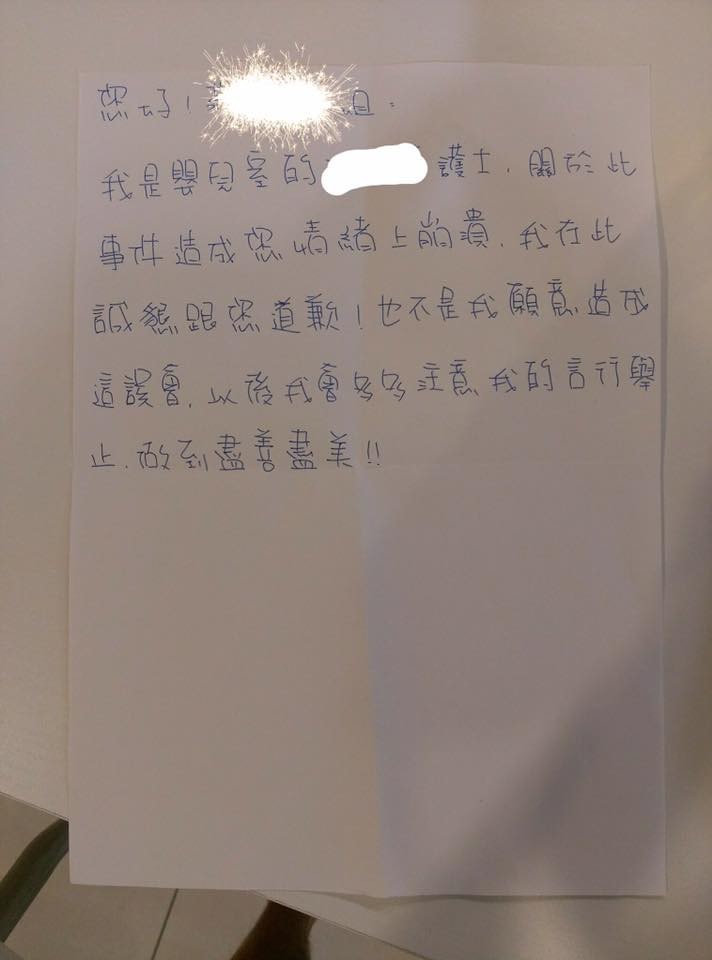 您好! 姐:
我是嬰兒室的 護士,關於此
事件造成您情緒上崩潰,我在此
誠懇跟您道歉!也不是我願意造成
這誤會,以後我會多多注意我的言行舉
止,做到盡善盡美!!